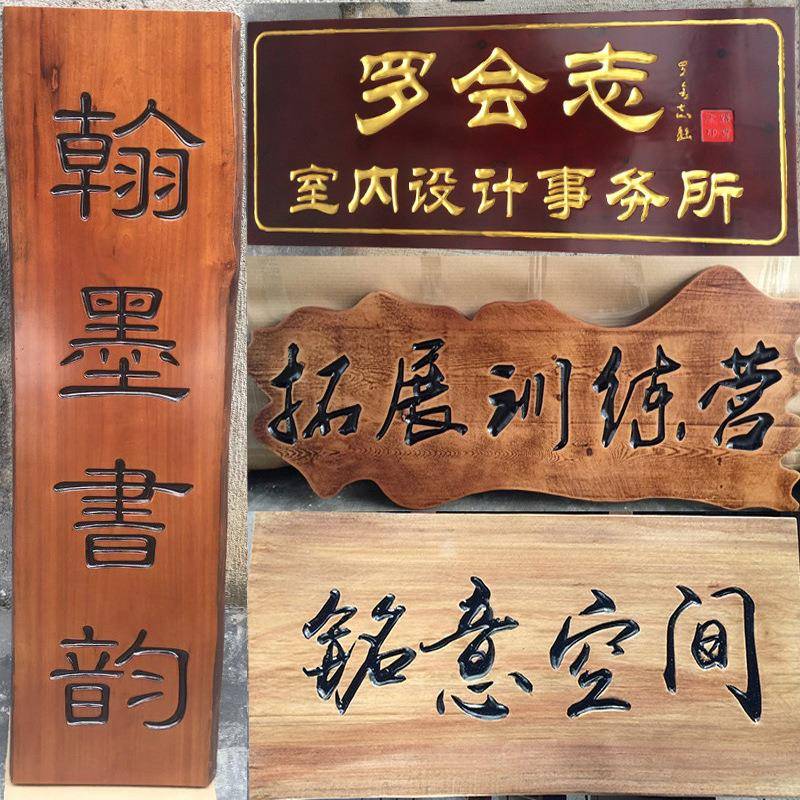 翰墨書韵
罗会志
室内设计事务所
拓展训练营
銘意空间